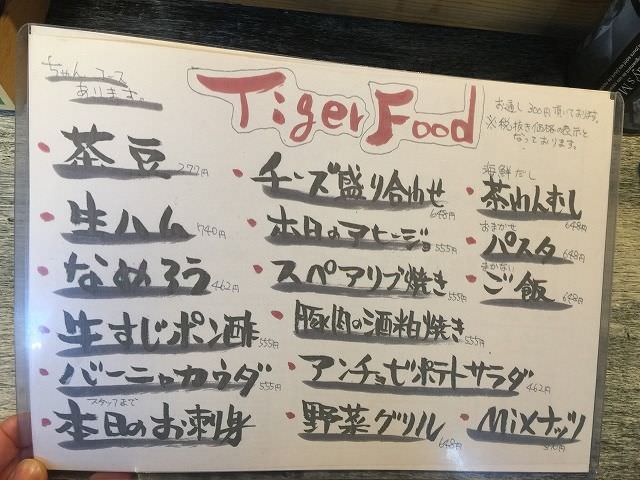 ちゃんコース
あります。
Tiger Food
お通し300円頂いております。
※税抜き価格の表示と
なっております。
茶豆 277円
生ハム 740円
なめろう 462円
生すじポン酢 555円
バーニャカウダ 555円
スタッフまで
本日のお刺身
チーズ盛り合わせ 648円
本日のアヒージョ 555円
スペアリブ焼き 555円
豚肉の酒粕焼き 555円
アンチョビポテトサラダ 462円
野菜グリル 648円
海鮮だし
茶わんむし 648円
おまかせ
パスタ 648円
まかない
ご飯 648円
Mixナッツ